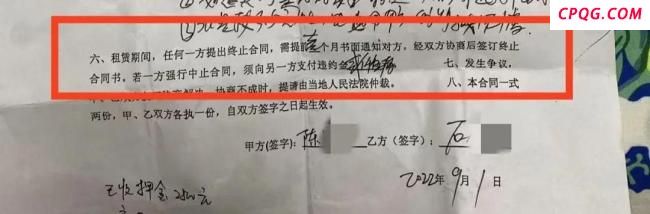 CPQG.COM
六、租赁期间，任何一方提出终止合同，需提前壹个月书面通知对方，经双方协商后签订终止
合同书。若一方强行中止合同，须向另一方支付违约金 七、发生争议，
协商不成时，提请由当地人民法院仲裁。 八、本合同一式
两份，甲、乙双方各执一份，自双方签字之日起生效。
甲方(签字)：陈 乙方（签字）：石
2022年9月1日
已收押金2500元